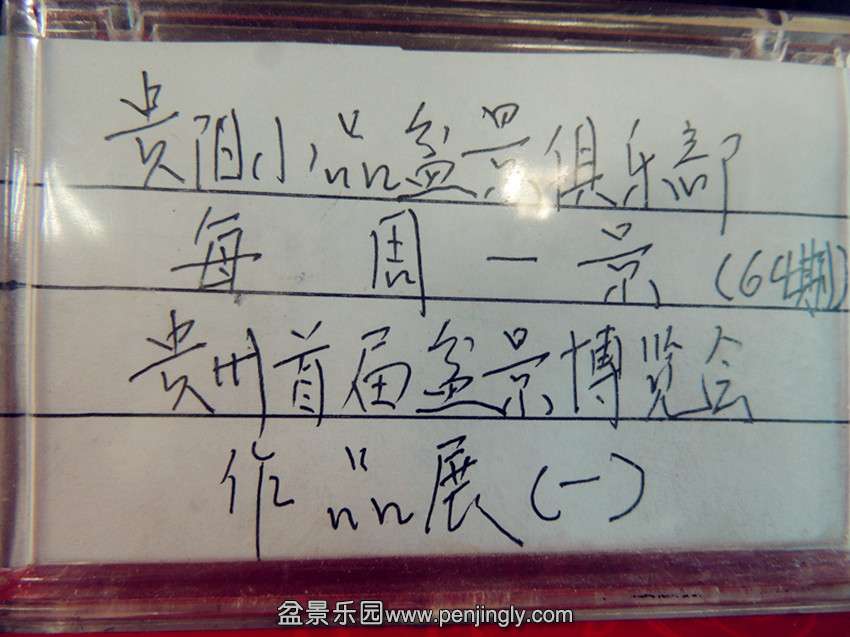 贵阳小品盆景俱乐部
每周一景(64期)
贵州首届盆景博览会
作品展(一)
盆景乐园www.penjingly.com